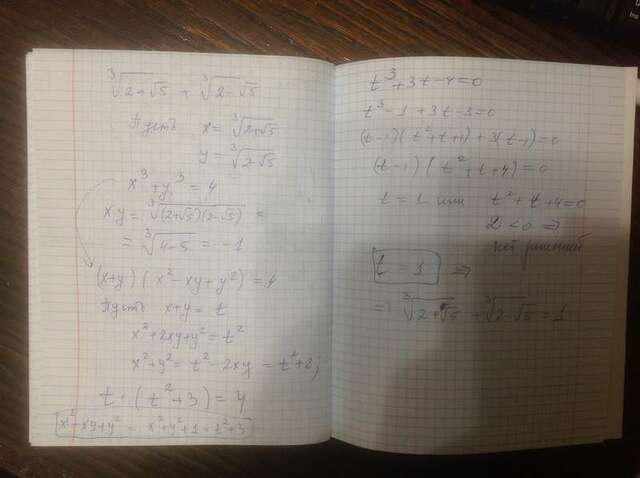 ∛(2+√5) + ∛(2-√5)
Пусть x = ∛(2+√5)
y = ∛(2-√5)
x³ + y³ = 4
x·y = ∛((2+√5)(2-√5)) =
= ∛(4-5) = -1
(x+y)(x² - xy + y²) = 4
Пусть x+y = t
x² + 2xy + y² = t²
x² + y² = t² - 2xy = t² + 2;
t · (t² + 3) = 4
x² - xy + y² = x² + y² + 1 = t² + 3
t³ + 3t - 4 = 0
t³ - 1 + 3t - 3 = 0
(t-1)(t² + t + 1) + 3(t-1) = 0
(t-1)(t² + t + 4) = 0
t = 1 или t² + t + 4 = 0
D < 0 ⇒
нет решений
t = 1 ⇒
⇒ ∛(2+√5) + ∛(2-√5) = 1